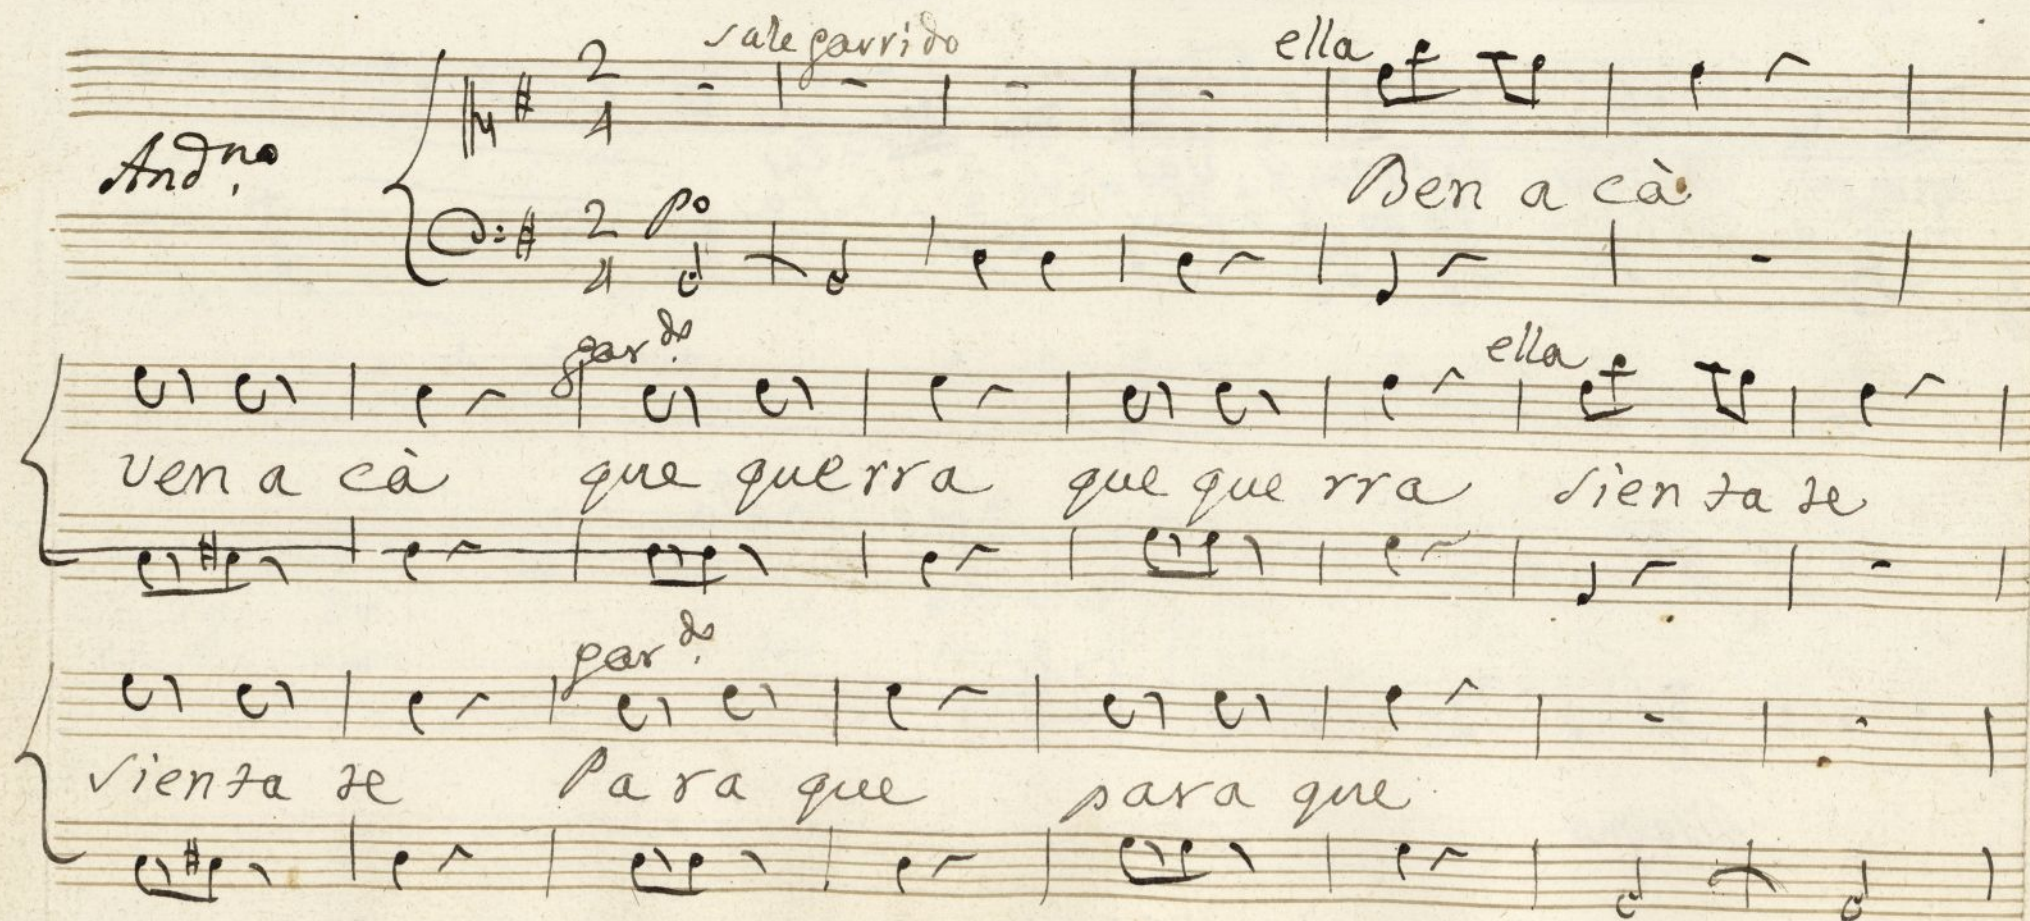 sale garrido ella
2 4
And.no
Ben a cà
2 4 po
gar.do ella
ven a cà que querra que que rra sien ta te
gar.do
sienta te Para que para que